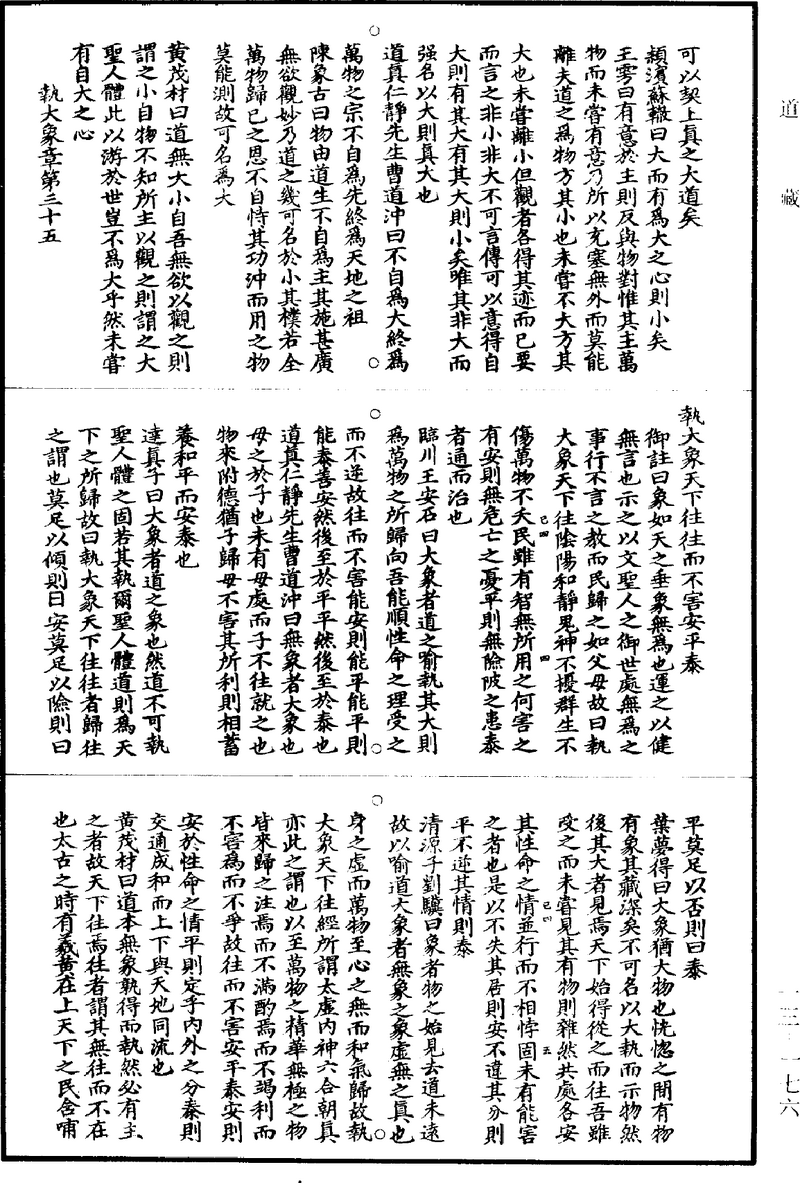 道藏
可以契上真之大道矣
潁濱蘇轍曰大而有爲大之心則小矣
王雱曰有意於主則反與物對惟其主萬
物而未嘗有意乃所以充塞無外而莫能
離夫道之爲物方其小也未嘗不大方其
大也未嘗離小但觀者各得其迹而已要
而言之非小非大不可言傳可以意得自
大則有其大有其大則小矣唯其非大而
强名以大則真大也
道真仁靜先生曹道沖曰不自爲大終爲
萬物之宗不自爲先終爲天地之祖
陳象古曰物由道生不自爲主其施甚廣
無欲觀妙乃道之幾可名於小其樸若全
萬物歸已之思不自恃其功沖而用之物
莫能測故可名爲大
黃茂材曰道無大小自吾無欲以觀之則
謂之小自物不知所主以觀之則謂之大
聖人體此以游於世豈不爲大乎然未嘗
有自大之心
執大象章第三十五
執大象天下往往而不害安平泰
御註曰象如天之垂象無爲也運之以健
無言也示之以文聖人之御世處無爲之
事行不言之教而民歸之如父母故曰執
大象天下往陰陽和靜鬼神不擾群生不
傷萬物不夭民雖有智無所用之何害之
有安則無危亡之憂平則無險陂之患泰
者通而治也
臨川王安石曰大象者道之喻執其大則
爲萬物之所歸向吾能順性命之理受之
而不逆故往而不害能安則能平能平則
能泰善安然後至於平平然後至於泰也
道真仁靜先生曹道沖曰無象者大象也
母之於子也未有母處而子不往就之也
物來附德猶子歸母不害其所利則相蓄
養和平而安泰也
達真子曰大象者道之象也然道不可執
聖人體之固若其執爾聖人體道則爲天
下之所歸故曰執大象天下往往者歸往
之謂也莫足以傾則曰安莫足以險則曰
平莫足以否則曰泰
葉夢得曰大象猶大物也恍惚之間有物
有象其藏深矣不可名以大執而示物然
後其大者見焉天下始得從之而往吾雖
受之而未嘗見其有物則雜然共處各安
其性命之情並行而不相悖固未有能害
之者也是以不失其居則安不違其分則
平不逆其情則泰
清源子劉驥曰象者物之始見去道未遠
故以喻道大象者無象之象虛無之真也
身之虛而萬物至心之無而和氣歸故執
大象天下往經所謂太虛內神六合朝真
亦此之謂也以至萬物之精華無極之物
皆來歸之注焉而不滿酌焉而不竭利而
不害爲而不爭故往而不害安平泰安則
安於性命之情平則定乎內外之分泰則
交通成和而上下與天地同流也
黃茂材曰道本無象孰得而執然必有主
之者故天下往焉往者謂其無往而不在
也太古之時有羲黃在上天下之民含哺
己四
四
己四
五
一三一七六